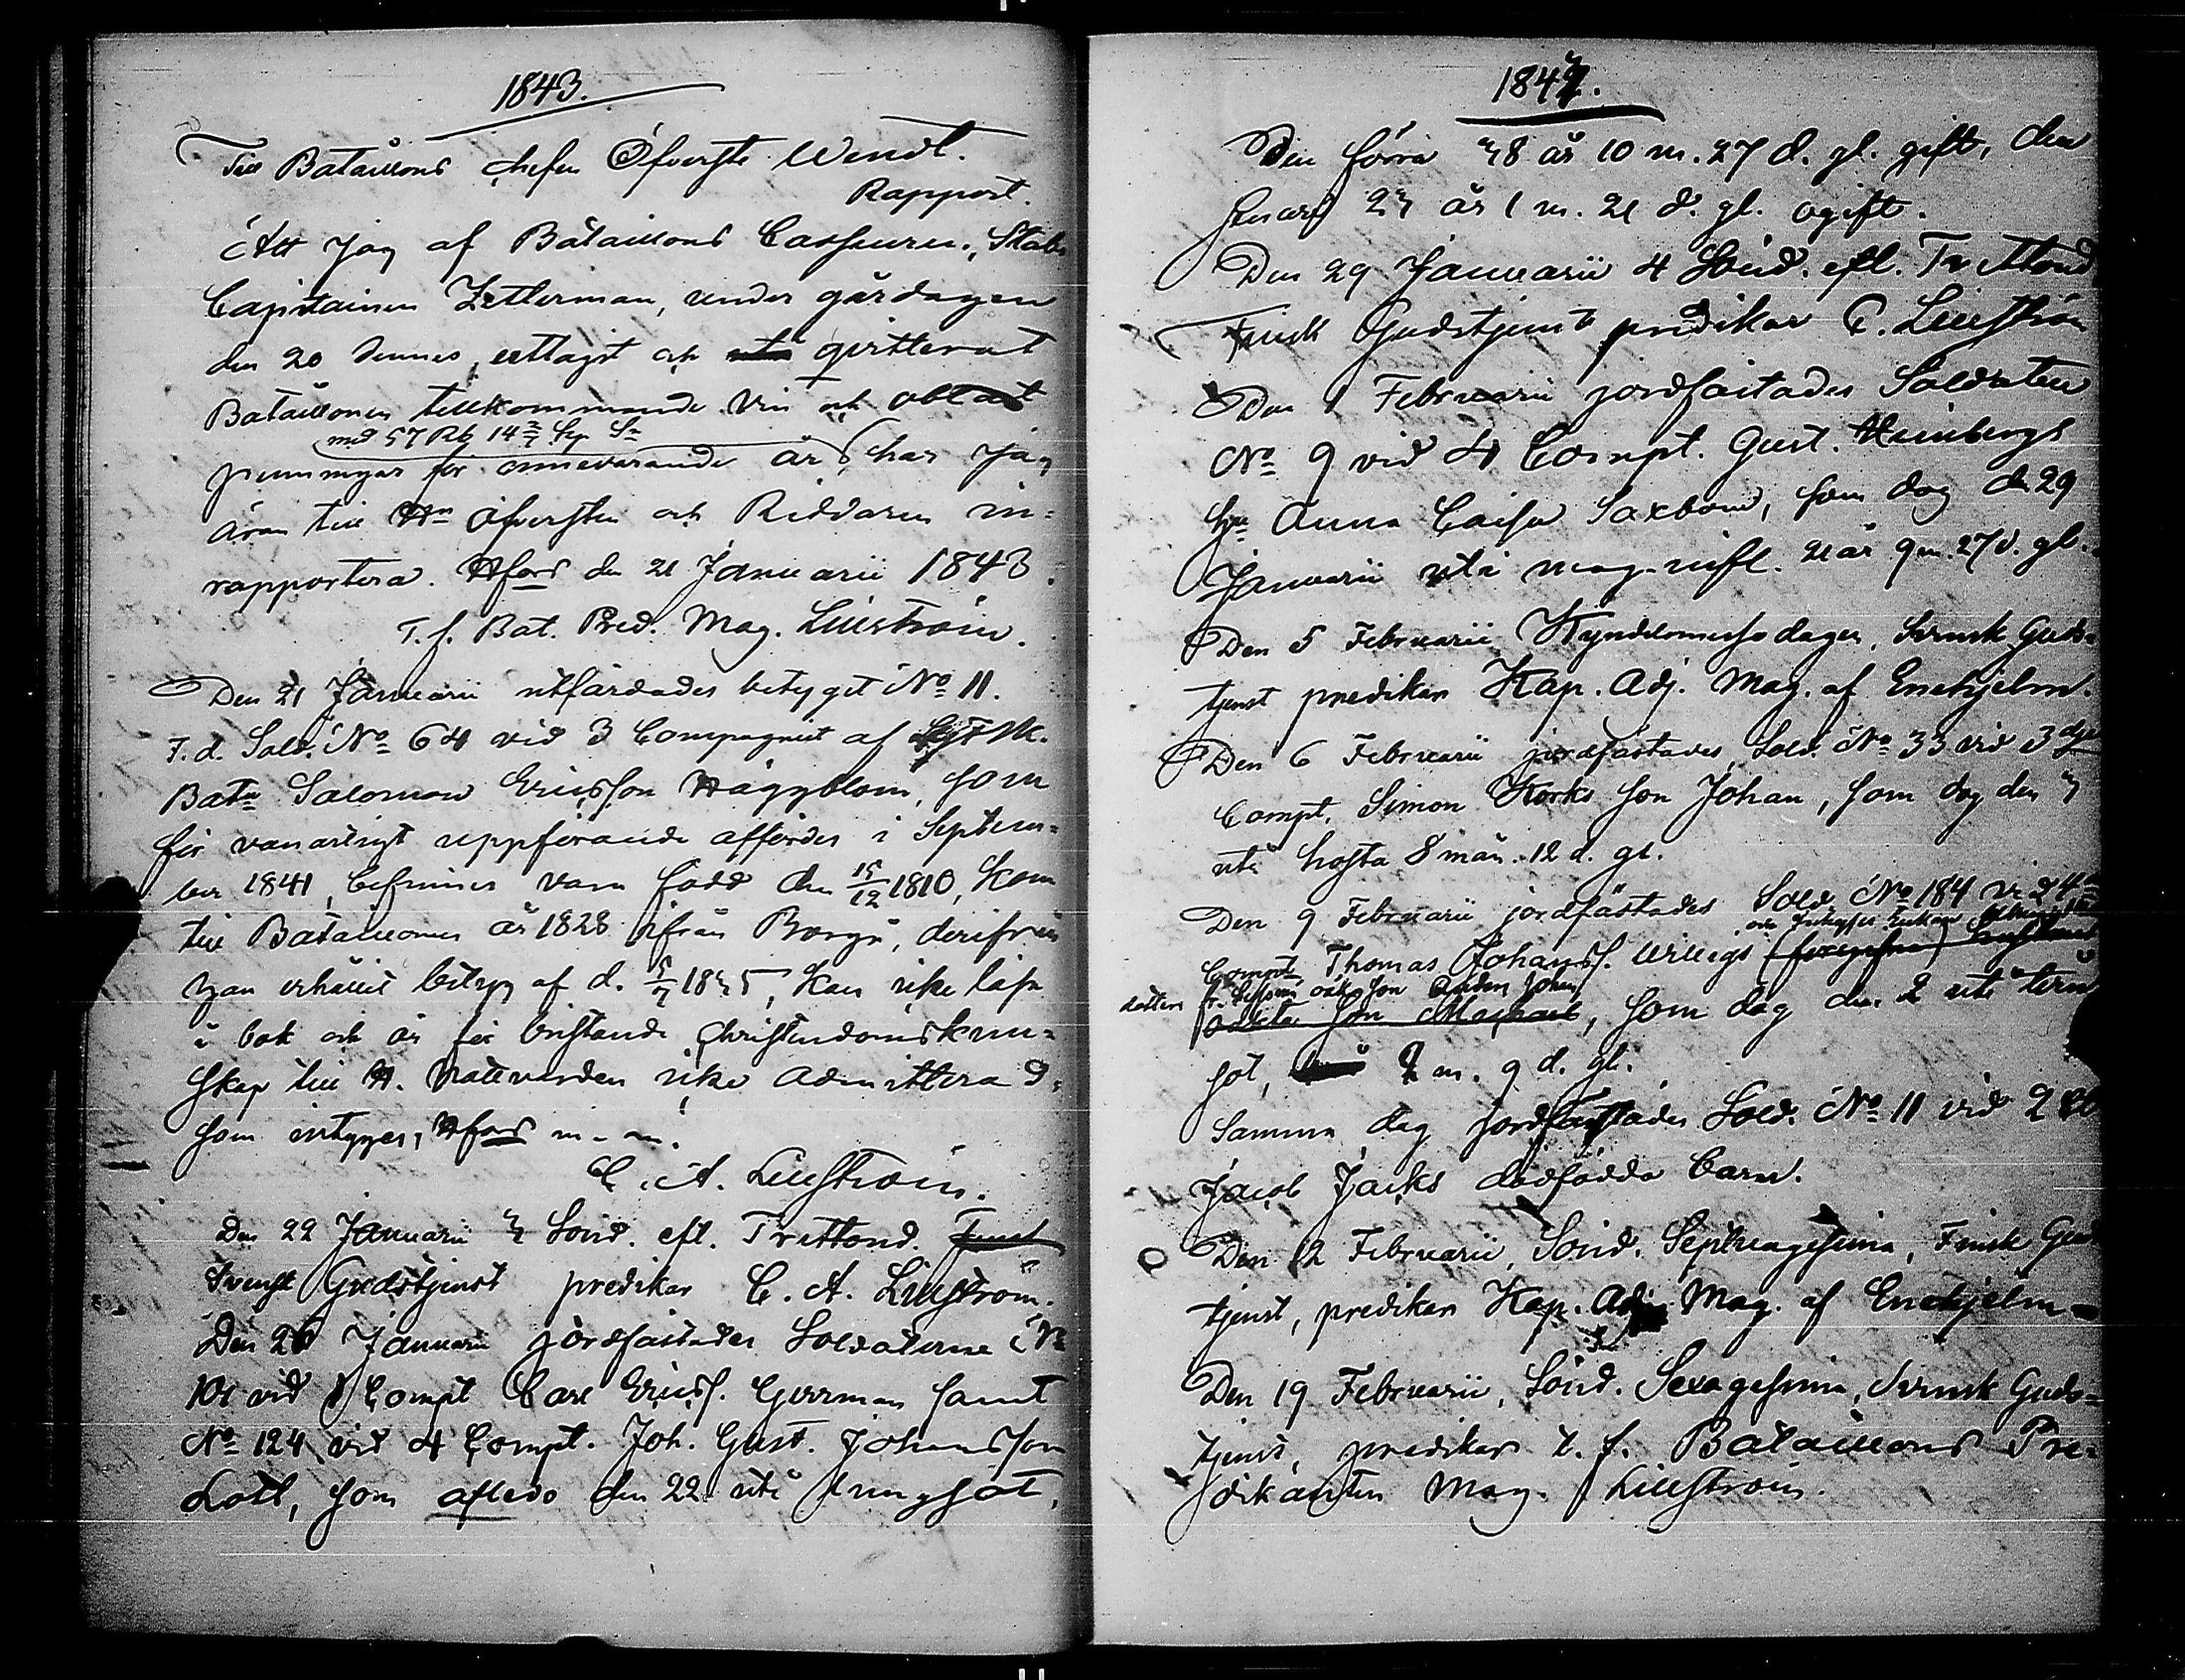 1843.
Till Bataillons chefen Öfverste Wendt.
Rapport.
Att jag af Bataillons Casseuren, Stabs
Capitainen Zetterman, under gårdagen
den 20 dennes, uttagit och qvitterat
Bataillonen tillkommande vin och oblat
med 57 Rb 14 2/7 Kop Sr
penningar för innevarande år, har jag
äran till Hrn Öfversten och Riddaren in-
rapportera. H:fors den 21 Januarii 1843.
T. f. Bat. Pred. Mag. Liliström.
Den 21 Januarii utfärdades betyget No 11.
F. d. Sold. No 64 vid 3 Compagniet af
Batn Salomon Ericsson Häggblom, som
för vanartigt uppförande affördes i Septem-
ber 1841, befinnes vara född den 15/12 1810, kom
till Bataillonen år 1828 ifrån Borgå, derifrån
han erhållit betyg af d. 5/7 1835, kan icke läsa
i bok och är för bristande Christendomskun-
skap till H. Nattvarden icke admitterad,
som intygas, H:fors m. m.
C. A. Liliström.
Den 22 Januarii 3 Sönd. eft. Trettond. Finsk
Svensk Gudstjenst predikar C. A. Liliström.
Den 26 Januarii jordfästades Soldaterne No
101 vid 1 Compt Carl Ericss. Gerrman samt
No 124 vid 4 Compt. Joh. Gust. Johansson
Lott, som afledo den 22 uti lungsot,
1843.
Den förra 38 år 10 m. 27 d. gl. gift, den
senare 23 år 1 m. 21 d. gl. ogift.
Den 29 Januarii 4 Sönd. eft. Trettond
Finsk Gudstjenst predikar C. Liliström
Den 1 Februarii jordfästades Soldaten
No 9 vid 4 Compt. Gust. Heinbergs
hu Anna Caisa Saxbom, som dog d. 29
Januarii uti mag-infl. 21 år 9 m. 27 d. gl.
Den 5 Februarii Kyndelsmessodagen, Svensk Guds-
tjenst predikar Kap. Adj. Mag. af Enehjelm.
Den 6 Februarii jordfästades Sold. No 33 vid 3dje
Compt. Simon Korks son Johan, som dog den 3
uti hosta 8 mån. 12 d. gl.
Den 9 Februarii jordfästades Sold. No 184 vid 4de
Compts Thomas Johanss. Willigs
oäkta son, som dog den 2 uti
sot, 2 m. 9 d. gl.
Samma dag jordfästades Sold. No 11 vid 2 Co
Jacob Jacks dödfödda barn.
Den 12 Februarii, Sönd. Septuagesima, Finsk Gud
tjenst, predikar Kap. Adj. Mag. af Enehjelm
Den 19 Februarii, Sönd. Sexagesima, Svensk Guds-
tjenst, predikar t. f. Bataillons Pre-
dikanten Mag. Liliström.